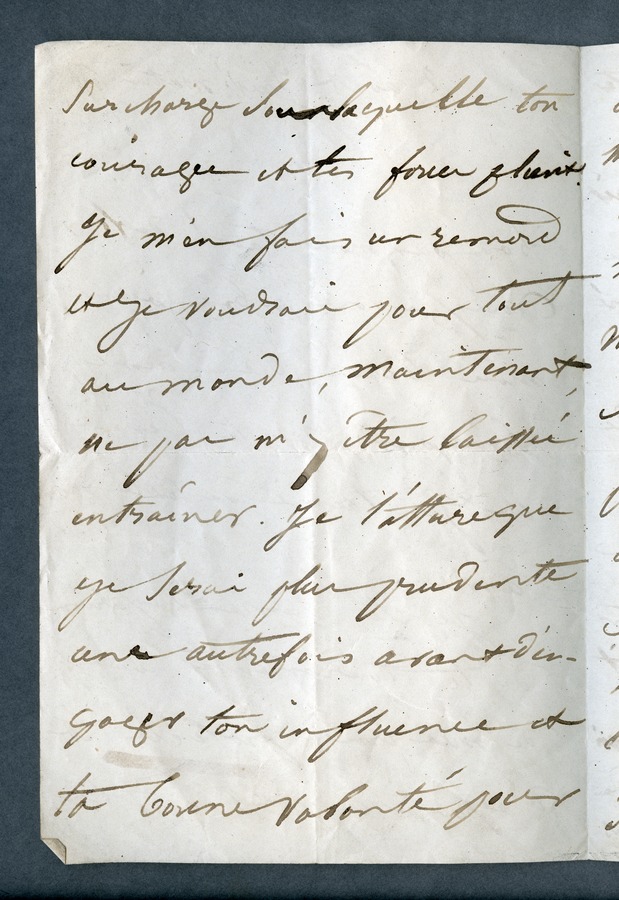 surcharge sous laquelle ton
courage et tes forces plient.
Je m'en fais un remord
et je voudrais pour tout
au monde, maintenant,
ne pas m'y être laissée
entraîner. Je t'assure que
je serai plus prudente
une autrefois avant d'en-
gager ton influence et
ta bonne volonté pour